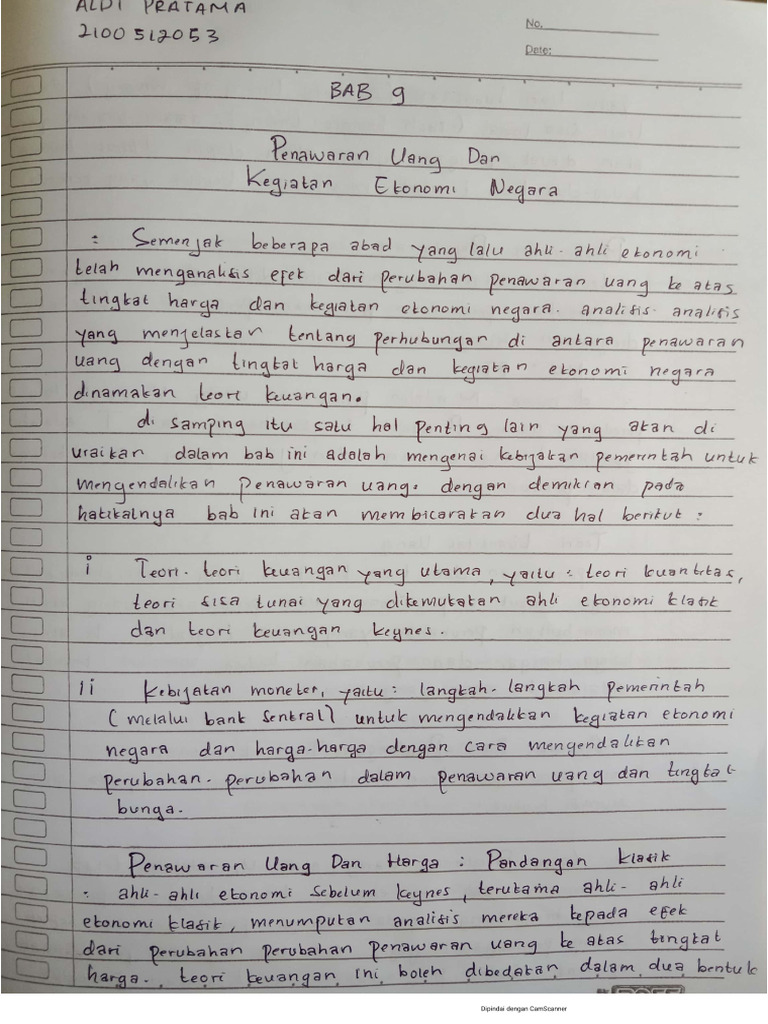 ALDI PRATAMA
2100512053
No.
Date:
BAB 9
Penawaran Uang Dan
Kegiatan Ekonomi Negara
: Semenjak beberapa abad yang lalu ahli-ahli ekonomi
telah menganalisis efek dari perubahan penawaran uang ke atas
tingkat harga dan kegiatan ekonomi negara. analisis-analisis
yang menjelaskan tentang perhubungan di antara penawaran
uang dengan tingkat harga dan kegiatan ekonomi negara
dinamakan teori keuangan.
di samping itu satu hal penting lain yang akan di
uraikan dalam bab ini adalah mengenai kebijakan pemerintah untuk
mengendalikan penawaran uang. dengan demikian pada
hakikalnya bab ini akan membicarakan dua hal berikut :
i Teori-teori keuangan yang utama, yaitu : teori kuantitas,
teori sisa tunai yang dikemukakan ahli ekonomi klasik
dan teori keuangan keynes.
ii Kebijakan moneter, yaitu : langkah-langkah pemerintah
(melalui bank sentral) untuk mengendalikan kegiatan ekonomi
negara dan harga-harga dengan cara mengendalikan
perubahan-perubahan dalam penawaran uang dan tingkat
bunga.
Penawaran Uang Dan Harga : Pandangan klasik
: ahli-ahli ekonomi sebelum keynes, terutama ahli-ahli
ekonomi klasik, menumpukan analisis mereka kepada efek
dari perubahan perubahan penawaran uang ke atas tingkat
harga. teori keuangan ini boleh dibedakan dalam dua bentuk
Dipindai dengan CamScanner